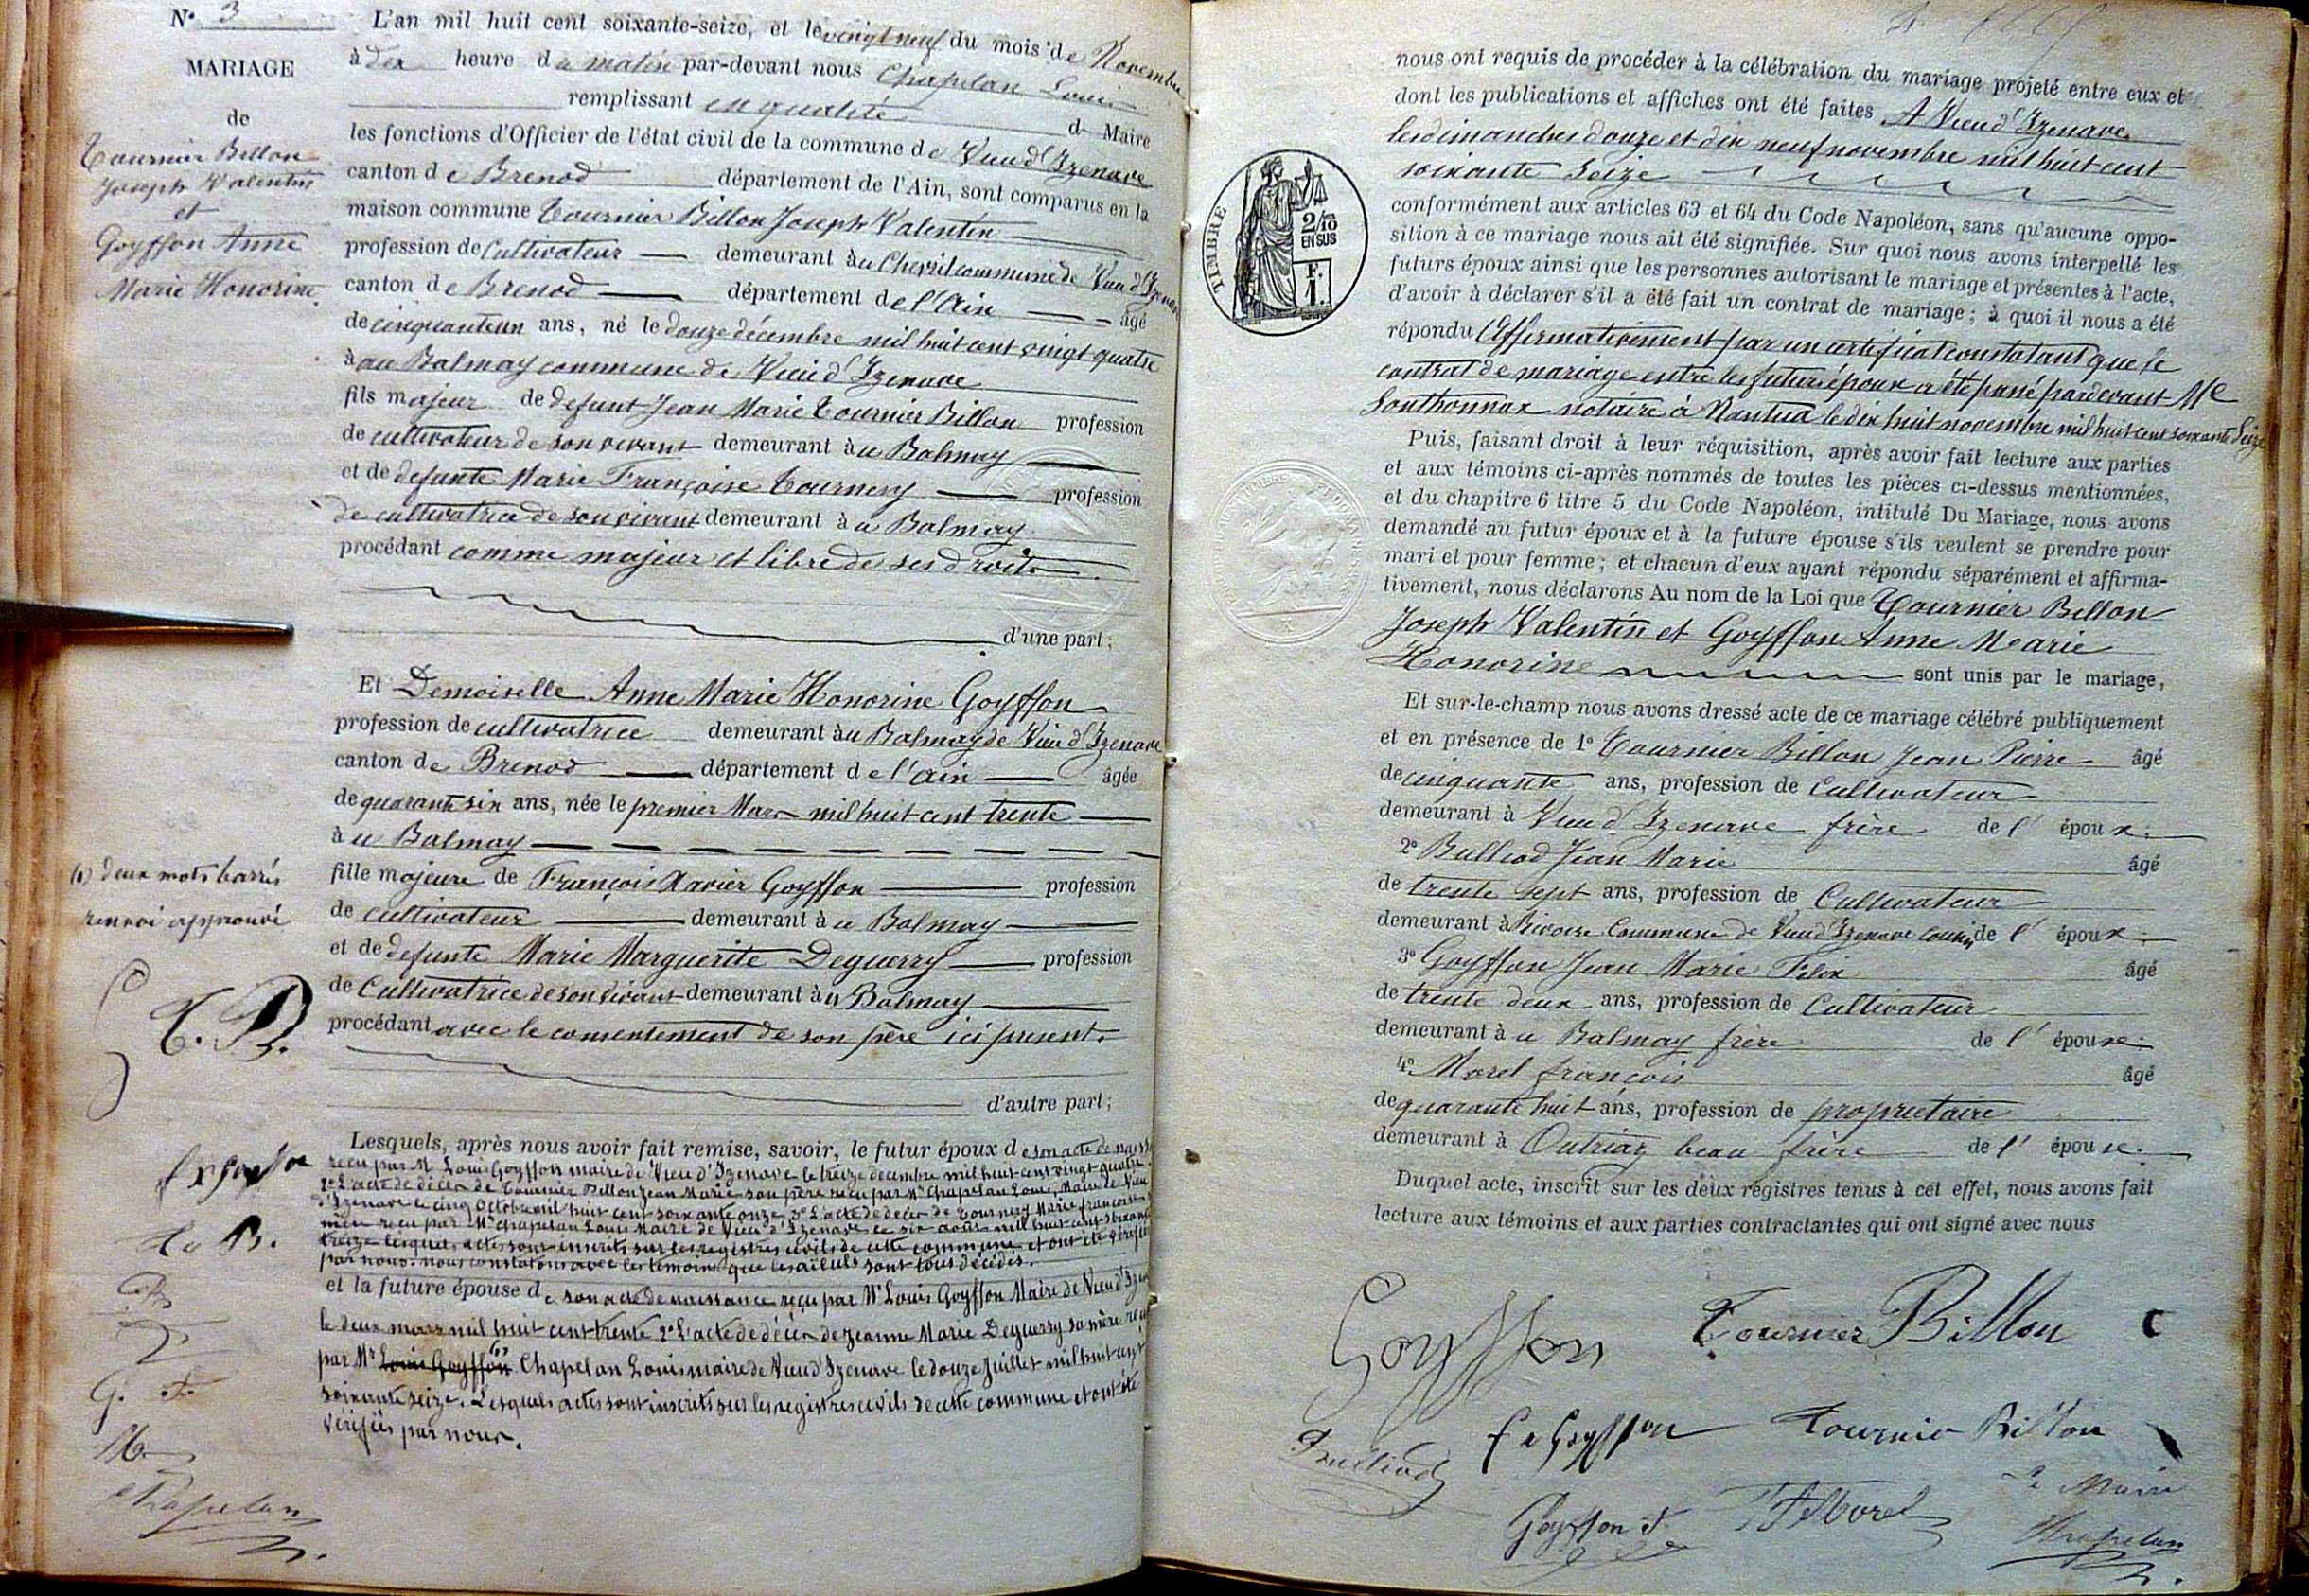 N° 3
MARIAGE
de
Tournier Billon
Joseph Valentin
et
Goyffon Anne
Marie Honorine.
L'an mil huit cent soixante-seize, et le vingt neuf du mois de Novembre
à dix heure du matin par-devant nous Chapelan Louis
remplissant en qualité d Maire
les fonctions d'Officier de l'état civil de la commune de Vieu d'Izenave
canton de Brenod département de l'Ain, sont comparus en la
maison commune Tournier Billon Joseph Valentin
profession de Cultivateur demeurant à commune de Vieu d'Izenave
canton de Brenod département de l'Ain âgé
de cinquante un ans, né le douze décembre mil huit cent vingt quatre
à au Balmay commune de Vieu d'Izenave
fils majeur de defunt Jean Marie Tournier Billon profession
de cultivateur de son vivant demeurant à u Balmay
et de defunte Marie Françoise Tournery profession
de cultivatrice de son vivant demeurant à u Balmay
procédant comme majeur et libre de ses droits.
d'une part;
Et Demoiselle Anne Marie Honorine Goyffon
profession de cultivatrice demeurant à u Balmay de Vieu d'Izenave
canton de Brenod département de l'ain âgée
de quarante six ans, née le premier Mars mil huit cent trente
à u Balmay
fille majeure de François Xavier Goyffon profession
de cultivateur demeurant à u Balmay
et de defunte Marie Marguerite Deguerry profession
de Cultivatrice de son vivant demeurant à u Balmay
procédant avec le consentement de son père ici présent.
d'autre part;
Lesquels, après nous avoir fait remise, savoir, le futur époux de son acte de
reçu par M Louis Goyffon maire de Vieu d'Izenave le treize decembre mil huit cent vingt quatre
2° L'acte de décès de Tournier Billon Jean Marie son père reçu par Mr Chapelan Louis, Maire de Vieu
d'Izenave le cinq Octobre mil huit cent soixante onze 3° L'acte de décès de Tournery Marie françoise
mère reçu par Mr Chapelan Louis Maire de Vieu d'Izenave le six août mil huit cent soixante
treize lesquels actes sont inscrits sur les registres civils de cette commune et ont été vérifiés
par nous. nous constatons avec les temoins que les aïeuls sont tous décédés.
et la future épouse de son acte de naissance reçu par Mr Louis Goyffon Maire de Vieu d'Izen
le deux mars mil huit cent trente 2° L'acte de décès de Jeanne Marie Deguerry sa mère reçu
par Mr Louis Goyffon (1) Chapelan Louis maire de Vieu d'Izenave le douze Juillet mil huit cent
soixante seize. Lesquels actes sont inscrits sur les registres civils de cette commune et ont été
vérifiés par nous.
(1) deux mots barrés
renvoi approuvé
G
T. B.
fx Goyffon
G. F.
M
Chapelan
nous ont requis de procéder à la célébration du mariage projeté entre eux et
dont les publications et affiches ont été faites A Vieu d'Izenave
les dimanches douze et dix neuf novembre mil huit cent
soixante Seize
conformément aux articles 63 et 64 du Code Napoléon, sans qu'aucune oppo-
sition à ce mariage nous ait été signifiée. Sur quoi nous avons interpellé les
futurs époux ainsi que les personnes autorisant le mariage et présentes à l'acte,
d'avoir à déclarer s'il a été fait un contrat de mariage; à quoi il nous a été
répondu Affirmativement par un certificat constatant que le
contrat de mariage entre les futurs époux a été passé pardevant Me
Sonthonnax notaire à Nantua le dix huit novembre mil huit cent soixante Seize
TIMBRE
2/10
EN SUS
F.
1.
Puis, faisant droit à leur réquisition, après avoir fait lecture aux parties
et aux témoins ci-après nommés de toutes les pièces ci-dessus mentionnées,
et du chapitre 6 titre 5 du Code Napoléon, intitulé Du Mariage, nous avons
demandé au futur époux et à la future épouse s'ils veulent se prendre pour
mari et pour femme; et chacun d'eux ayant répondu séparément et affirma-
tivement, nous déclarons Au nom de la Loi que Tournier Billon
Joseph Valentin et Goyffon Anne Marie
Honorine sont unis par le mariage,
Et sur-le-champ nous avons dressé acte de ce mariage célébré publiquement
et en présence de 1° Tournier Billon Jean Pierre âgé
de cinquante ans, profession de Cultivateur
demeurant à Vieu d'Izenave frère de l' époux.
2° Bulliod Jean Marie âgé
de trente sept ans, profession de Cultivateur
demeurant à Rivoire Commune de Vieu d'Izenave cousin de l' époux.
3° Goyffon Jean Marie Félix âgé
de trente deux ans, profession de Cultivateur
demeurant à u Balmay frère de l' épouse.
4° Morel françois âgé
de quarante huit ans, profession de propriétaire
demeurant à Outriaz beau frère de l' épouse.
Duquel acte, inscrit sur les deux registres tenus à cet effet, nous avons fait
lecture aux témoins et aux parties contractantes qui ont signé avec nous
Goyffon Tournier Billon
Bulliod fx Goyffon Tournier Billon
Goyffon F Morel
Le Maire
Chapelan